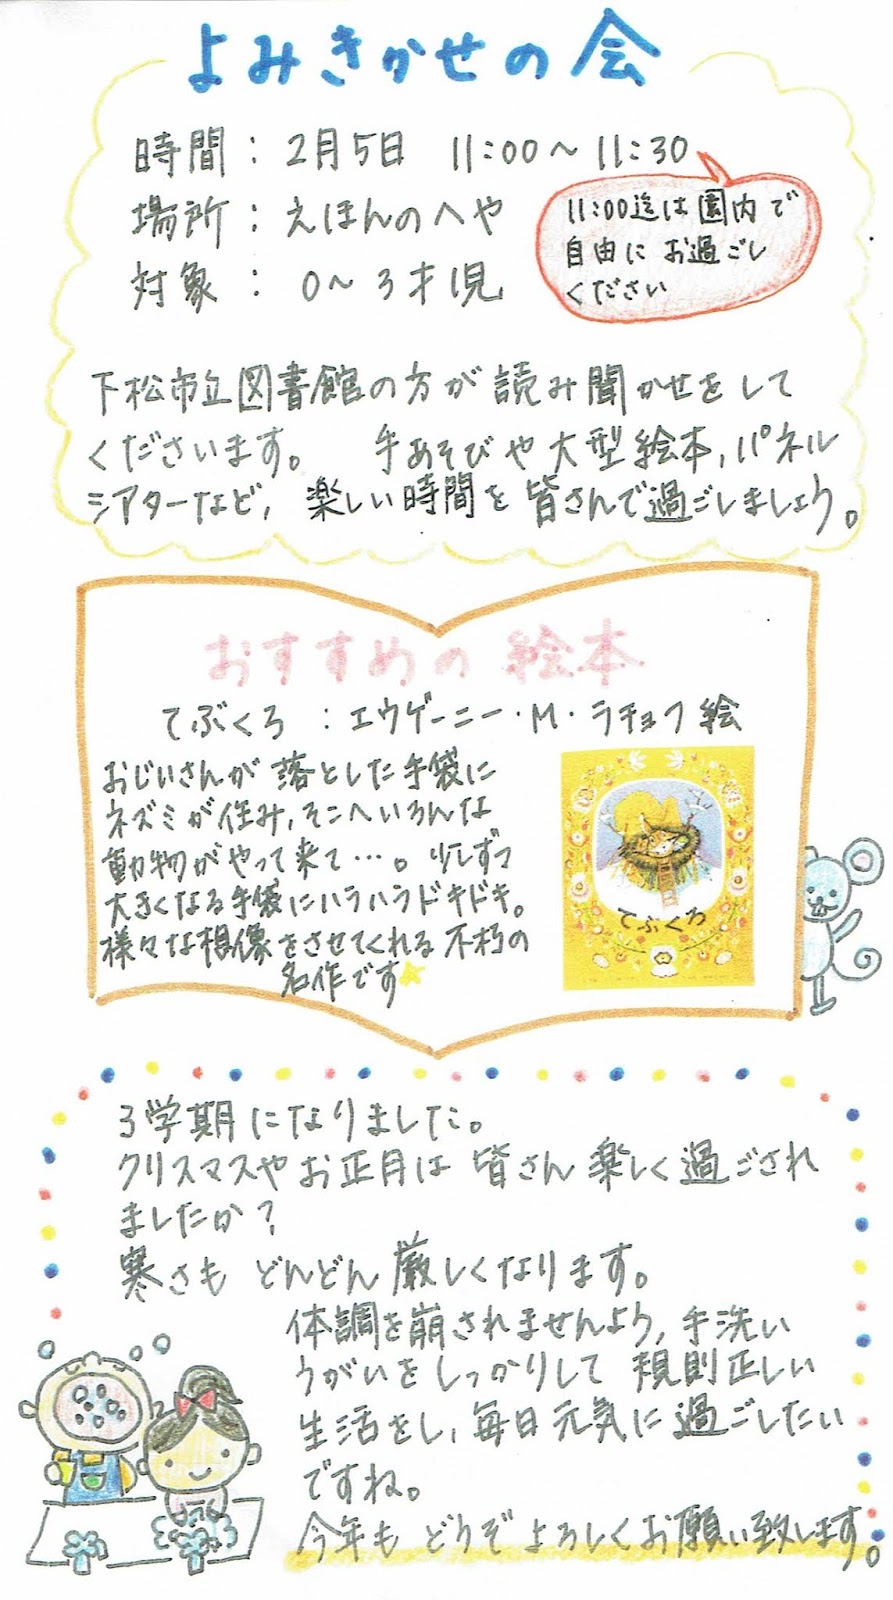 よみきかせの会
時間：2月5日 11:00〜11:30
場所：えほんのへや
対象：0〜3才児
11:00迄は園内で
自由にお過ごし
ください
下松市立図書館の方が読み聞かせをして
くださいます。 手あそびや大型絵本,パネル
シアターなど,楽しい時間を皆さんで過ごしましょう。
おすすめの絵本
てぶくろ：エウゲーニー・M・ラチョフ絵
おじいさんが落とした手袋に
ネズミが住み,そこへいろんな
動物がやって来て…。少しずつ
大きくなる手袋にハラハラドキドキ。
様々な想像をさせてくれる不朽の
名作です
てぶくろ
3学期になりました。
クリスマスやお正月は皆さん楽しく過ごされ
ましたか?
寒さもどんどん厳しくなります。
体調を崩されませんよう,手洗い
うがいをしっかりして規則正しい
生活をし,毎日元気に過ごしたい
ですね。
今年もどうぞよろしくお願い致します。